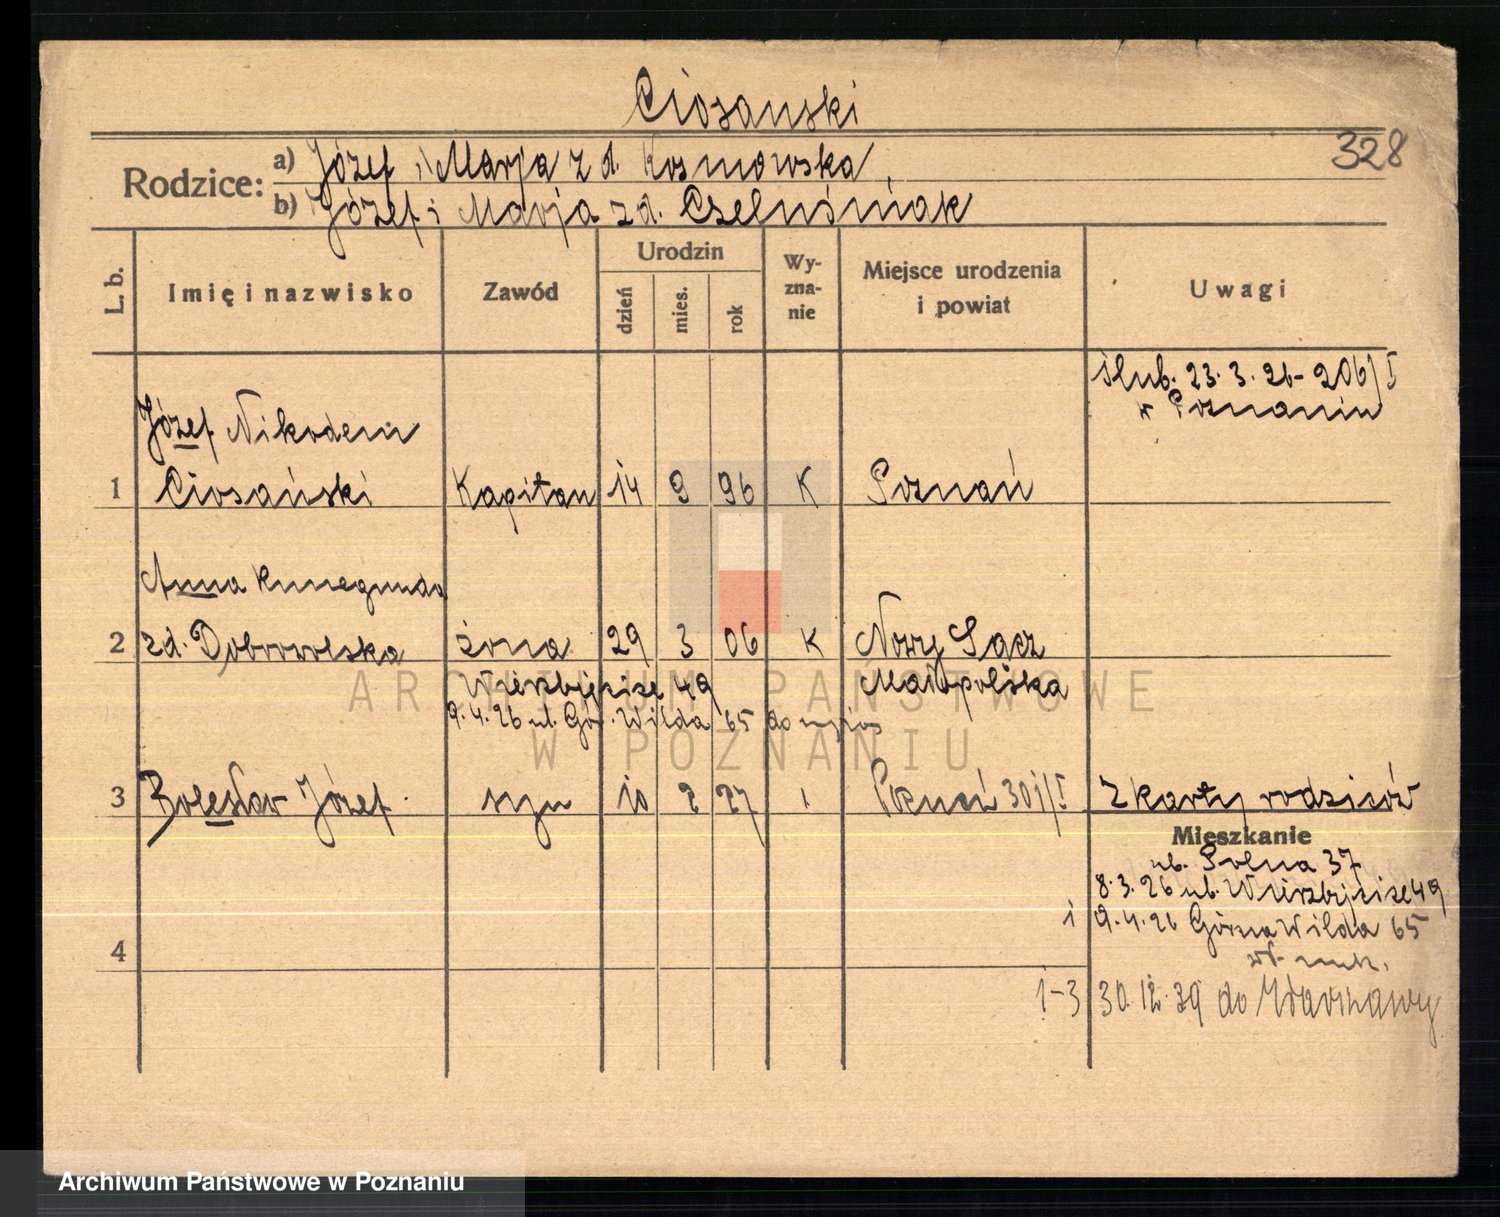 Ciosanski
328
Rodzice:
a) Józef i Marja z d. Kosmowska
b) Józef i Marja zd. Czeluśniak
L. b.
Imię i nazwisko
Zawód
Urodzin
dzień
mies.
rok
Wy-
zna-
nie
Miejsce urodzenia
i powiat
Uwagi
ślub. 23. 3. 26 - 206/I
w Poznaniu
Józef Nikodem
1 Ciosański Kapitan 14 9 96 K Poznań
Anna Kunegunda
2 zd. Dobrowolska żona 29 3 06 K Nowy Sącz
Wierzbięcice 49 Małopolska
9.4.26 ul. Gór. Wilda 65
3 Bolesław Józef syn 10 2 27 Poznań 301/I z karty rodziców
Mieszkanie
ul. Polna 37
8.3.26 ul. Wierzbięcice 49
9.4.26 Górna Wilda 65
4
1-3 30.12.39 do Warszawy
ARCHIWUM PAŃSTWOWE
W POZNANIU
Archiwum Państwowe w Poznaniu